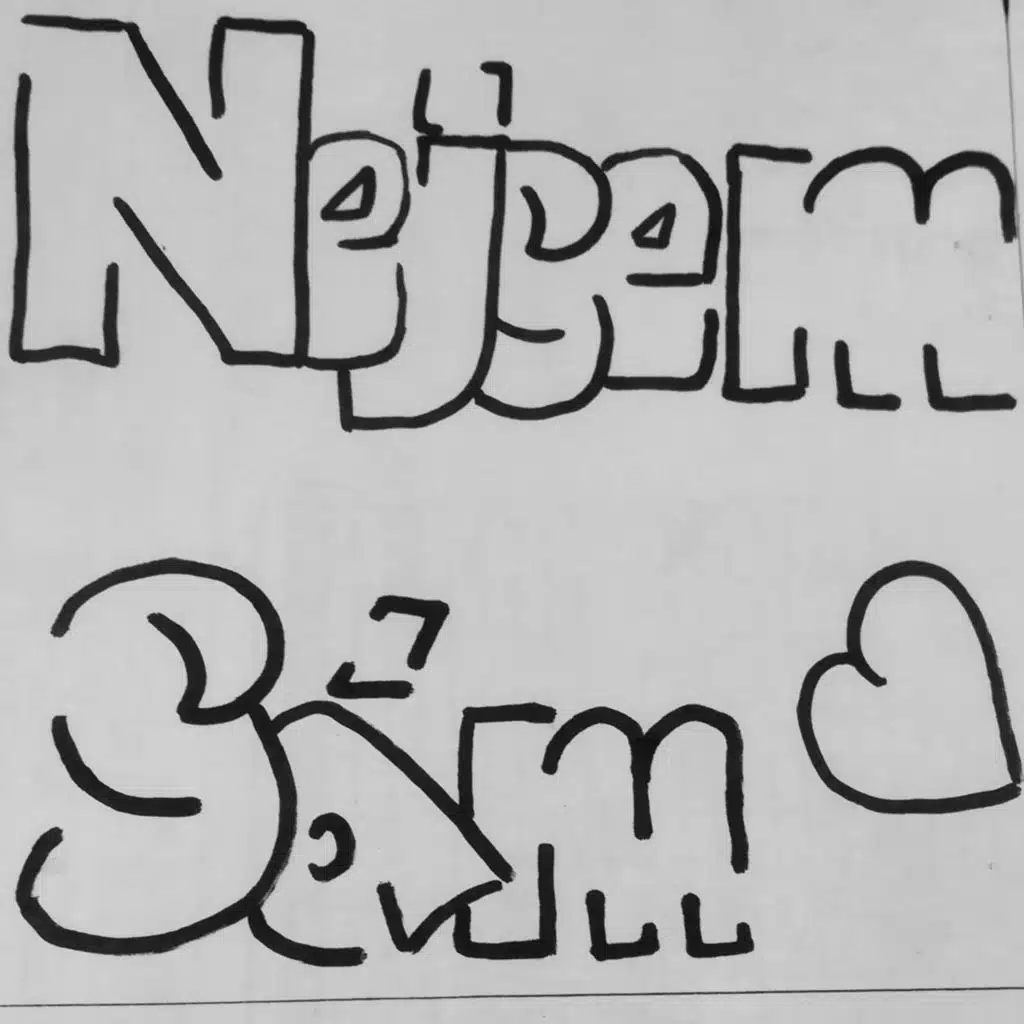 Nejsem
Sám